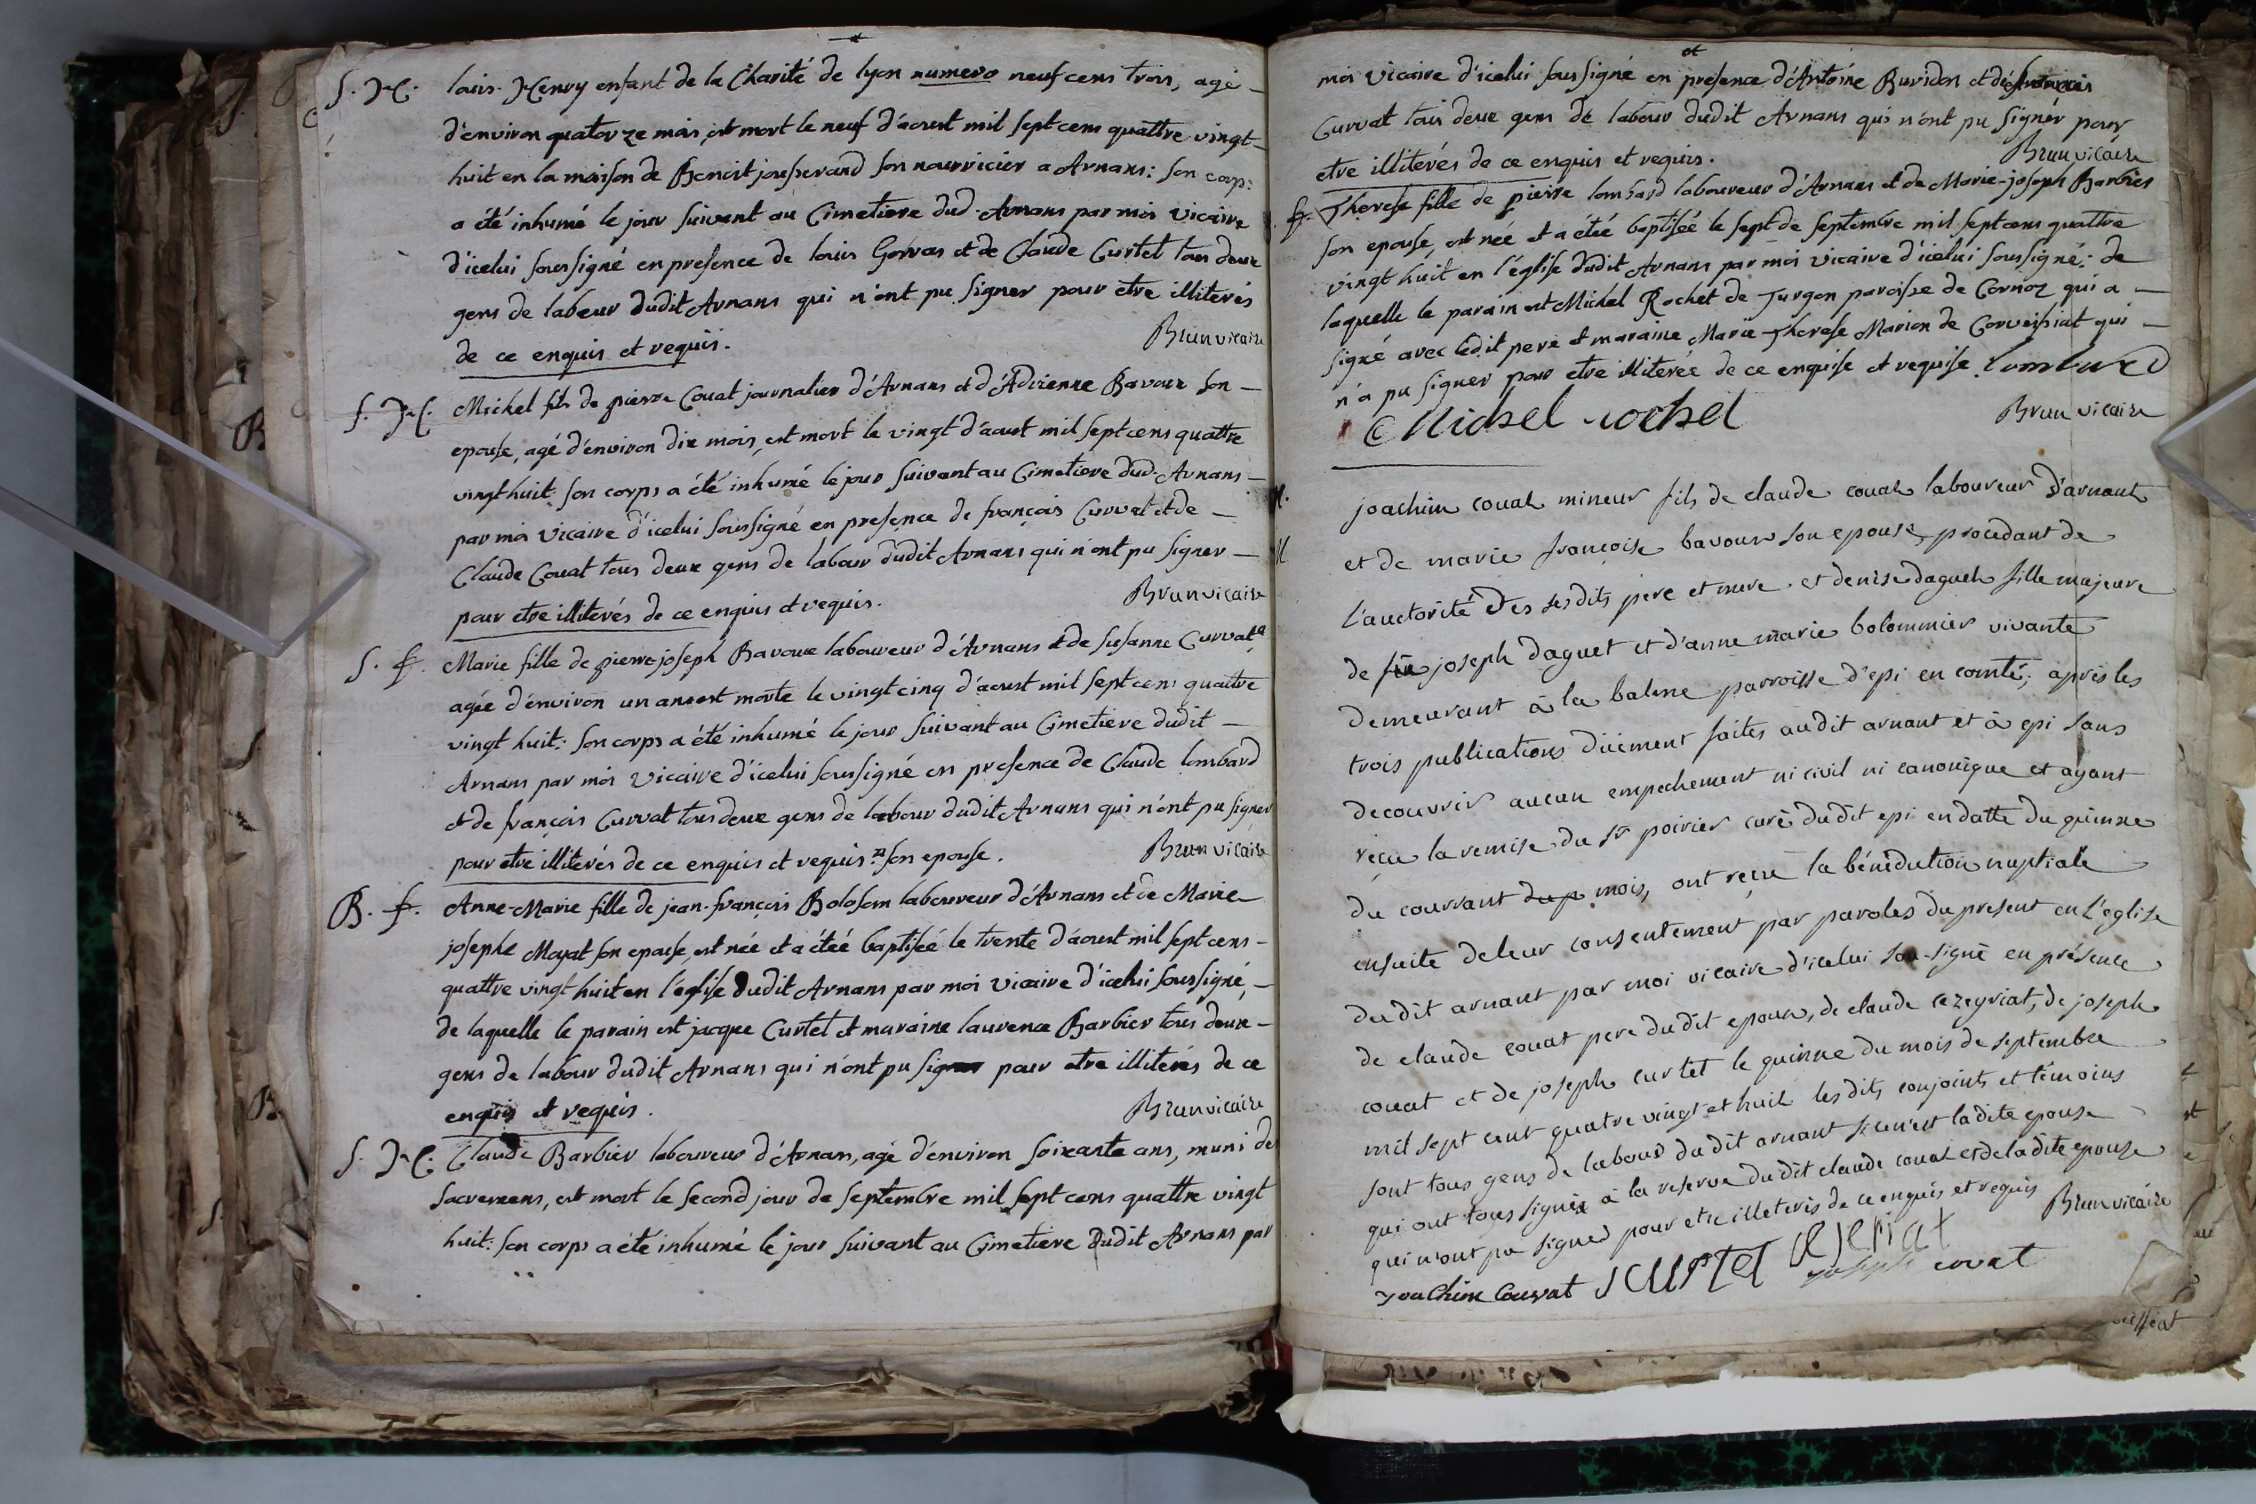 S. H. louis-Henry enfant de la Charité de lyon numero neuf cens trois, agé
d'environ quatorze mois, est mort le neuf d'aoust mil sept cens quattre vingt
huit en la maison de Benoit jousserand son nourricier a Arnans: son corps
a été inhumé le jour suivant au Cimetiere dud. Arnans par moi vicaire
d'icelui soussigné en presence de louis Gorvas et de Claude Curtet tous deux
gens de labeur dudit Arnans qui n'ont pu signer pour etre illiterés
de ce enquis et requis. Brun vicaire
S. H. Michel fils de pierre Couat journalier d'Arnans et d'Adrienne Bavoux son
epouse, agé d'environ dix mois, est mort le vingt d'aoust mil sept cens quattre
vingt huit: son corps a été inhumé le jour suivant au Cimetiere dud. Arnans
par moi vicaire d'icelui soussigné en presence de françois Curvat et de
Claude Couat tous deux gens de labour dudit Arnans qui n'ont pu signer
pour etre illiterés de ce enquis et requis. Brun vicaire
S. f. Marie fille de pierre joseph Bavoux laboureur d'Arnans et de Susanne Curvat
agée d'environ un an est morte le vingt cinq d'aoust mil sept cens quattre
vingt huit: son corps a été inhumé le jour suivant au Cimetiere dudit
Arnans par moi vicaire d'icelui soussigné en presence de Claude lombard
et de françois Curvat tous deux gens de labour dudit Arnans qui n'ont pu signer
pour etre illiterés de ce enquis et requis. son epouse. Brun vicaire
B. f. Anne-Marie fille de jean-françois Bolosom laboureur d'Arnans et de Marie
josephe Mayat son epouse, est née et a étéé baptisée le trente d'aoust mil sept cens
quattre vingt huit en l'eglise dudit Arnans par moi vicaire d'icelui soussigné,
de laquelle le parain est jacque Curtet et maraine laurence Barbier tous deux
gens de labour dudit Arnans qui n'ont pu signer pour etre illiterés de ce
enquis et requis. Brun vicaire
S. H. Claude Barbier laboureur d'Arnans, agé d'environ soixante ans, muni des
sacremens, est mort le second jour de septembre mil sept cens quattre vingt
huit: son corps a été inhumé le jour suivant au Cimetiere dudit Arnans par
moi vicaire d'icelui soussigné en presence d'Antoine Buvidon et
Curvat tous deux gens de labour dudit Arnans qui n'ont pu signer pour
etre illiterés de ce enquis et requis. Brun vicaire
f. Therese fille de pierre lombard laboureur d'Arnans et de Marie-joseph Barbier
son epouse, est née et a étéé baptisée le sept de septembre mil sept cens quattre
vingt huit en l'église dudit Arnans par moi vicaire d'icelui soussigné: de
laquelle le parain est Michel Rochet de Turgon paroisse de Cornoz qui a
signé avec ledit pere et maraine Marie-Therese Marion de Corveissiat qui
n'a pu signer pour etre illiterée de ce enquise et requise. lombard
Michel rochet Brun vicaire
joachim couat mineur fils de claude couat laboureur d'arnant
et de marie françoise bavoux son epouse, procedant de
l'auctorité des sesdits pere et mere. et denise daguet fille majeure
de feu joseph daguet et d'anne marie bolommier vivante
demeurant à la balme parroisse d'epi en comté; après les
trois publications düement faites audit arnant et à epi sans
decouvrir aucun empechement ni civil ni canonique et ayant
reçu la remise du sr poirier curé dudit epi en datte du quinze
du courrant mois, ont reçu la bénédiction nuptiale
ensuite de leur consentement par paroles du present en l'eglise
dudit arnant par moi vicaire d'icelui sou-signé en présence
de claude couat pere dudit epoux, de claude cezeyriat, de joseph
couat et de joseph curtet le quinze du mois de septembre
mil sept cent quatre vingt et huit lesdits conjoints et témoins
sont tous gens de labour dudit arnant si ce n'est ladite epouse
qui ont tous signés à la reserve dudit claude couat et de ladite epouse
qui n'ont pu signer pour etre illeterés de ce enquis et requis Brun vicaire
joachim Couvat J CURTET joseph couat